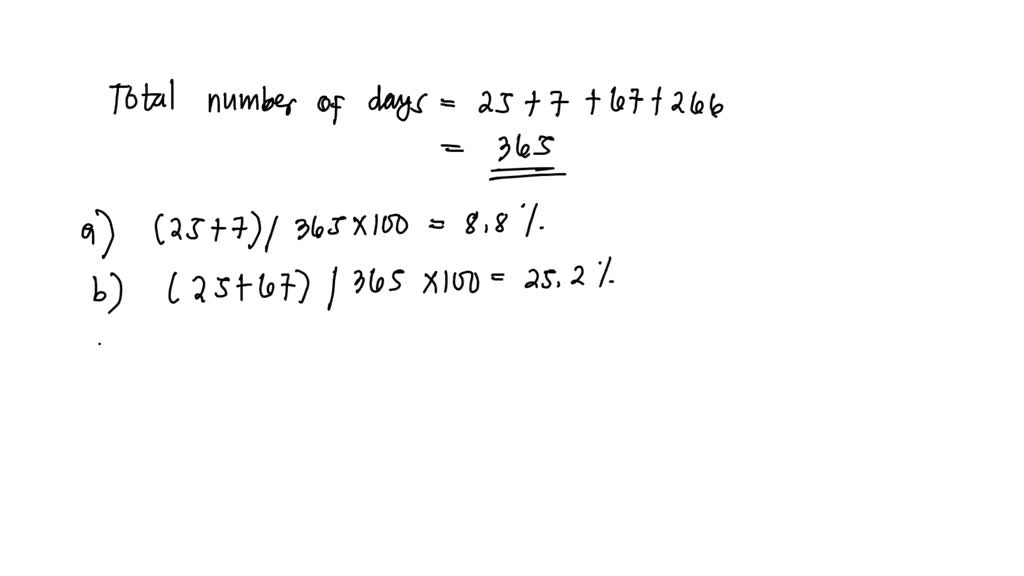 Total number of days = 25 + 7 + 67 + 266
= 365
a) (25+7) / 365 × 100 = 8.8 %
b) (25+67) / 365 × 100 = 25.2 %